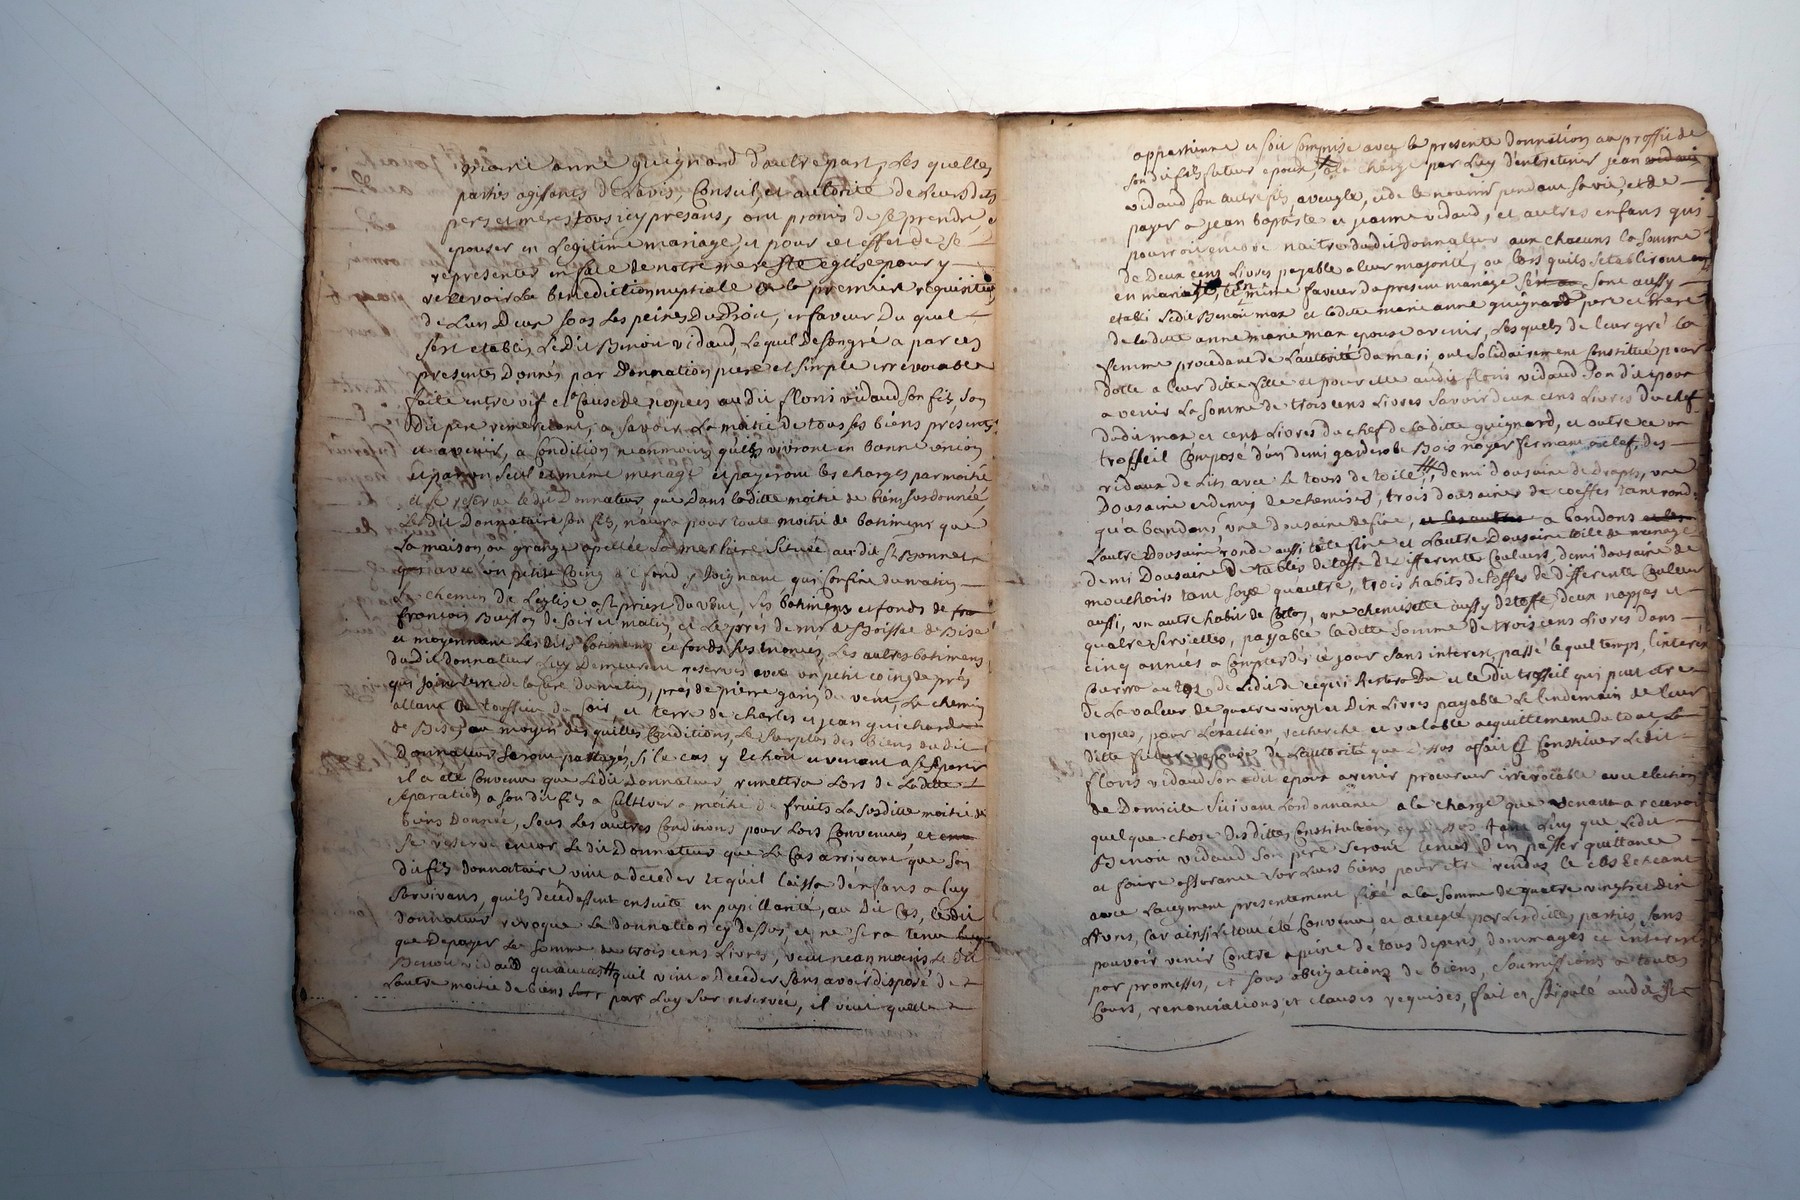 marie anne guignard d'autre part, Les quelles
parties agissants de Lavis, Conseil, et autorité de Leurs dits
peres et meres tous icy presans, ont promis de se prendre et
epouser en Legitime mariage, et pour cet effet de se
representer en face de notre mere ste eglise pour y
recevoir La benediction nuptiale a la premiere requisition
de L'un Deux sous Les peines Du Droit, en faveur Du quel
sest etabli Le Dit Benoit vidaud, Lequel de son gré a par ces
presentes Donnés par Donnation pure et simple irrevocable
faite entre vif et a Cause de nopces audit floris vidaud son fils, son
Dit pere remerciant, a savoir La moitié de tous ses biens presents
et avenir, a condition neanmoins quils vivront en bonne union
et par un seul et même menage et payeront les charges par moitié
et se reserve le dit Donnateur, que Dans laditte moitié de biens susdonnée,
Le dit Donnataire son fils, n'aura pour toute moitié de batiment que
La maison ou grange apellée La merlaire située audit st Bonnet
avec un petit Coing de fond y Joignant qui Confine de matin
Le chemin de Leglise a st priest Du vent, Les batiments et fonds de
francois Buisson de soir et matin, et Le prés de mr de Boissac de Bise
et moyennant Lesdits batiments et fonds susdonnés, Les autres batiments
dudit donnateur Luy Demeurent reservés avec un petit coing de prés
qui joint terre de La cure du matin, prés de pierre garin du vent, Le chemin
allant a touffieu du soir, et terre de charles et jean guichard
de Bise, au moyen des quelles Conditions, Le surplus des Biens dudit
Donnateur seront partagés, si le cas y Echoit et venant a se separer
il a eté Convenu que Ledit donnateur, remettra Lors de Ladite
separation a son dit fils a Cultiver a moitié de fruits La susditte moitié de
biens Donnée, sous Les autres Conditions pour Lors Convenues,
se reserve encor Le dit Donnateur que Le Cas arrivant que son
dit fils donnataire vint a deceder et qu'il Laissa d'enfans a Luy
survivans, quils decedassent ensuite en pupillarité, au dit Cas, le dit
donnateur revoque La donnation cy dessus, et ne sera tenu
que Depayer La somme de trois cens Livres, veut neanmoins Le dit
Benoit vidaud qu'au cas qu'il vint a deceder sans avoir disposé de
L'autre moitié de biens par Luy sus reservée, il veut quelle
appartienne et soit Comprise avec la presente Donnation au proffit de
son dit fils futur epoux, a la charge par Luy d'entretenir jean
vidaud son autre fils aveugle, et de le nourrir pendant sa vie, et de
payer a jean baptiste et jeanne vidaud, et autres enfans qui
pourroient encore naitre dudit donnateur aux chacuns la somme
de Deux cens Livres payable a leur majorité, ou lors quils setabliront
en mariage, et en même faveur du present mariage sont aussy
etabli Ledit Benoit max et ladite marie anne guignard pere et mere
de ladite anne marie max epouse avenir, Lesquels de leur gré La
femme procedant de L'autorité du mari ont solidairement Constitué pour
dotte a leur ditte fille et pour elle audit floris vidaud son dit epoux
a venir La somme de trois cens Livres savoir deux cens Livres Du chef
Dudit max et cent Livres Du chef de Laditte guignard, et outre ce un
trosseil Composé d'un demi garderobe Bois noyer fermant a clef, des
ridaux de Lits avec le tours de toile, demi dousaine de draps, une
Dousaine et demis de chemises, trois dousaines de coeffes tant rond
qu'a bandons, une dousaine de fine, a bandons
L'autre Dousaine ronde aussi toile fine et L'autre Dousaine toile de menage
demi Dousaine de tabliés detoffe de differente Couleurs, demi dousaine de
mouchoirs tant soye qu'autre, trois habits detoffes de differente Couleur
aussi, un autre habit de Coton, une chemisette aussy detoffe, deux nappes et
quatre serviettes, payable laditte somme de trois cens Livres dans
cinq années a Compter dès ce jour sans interets, passé lequel temps, L'interet
Courra au de Ledit de ce qui Restera Du et le dit trosseil qui peut etre
de La valeur de quatre vingt et Dix Livres payable Le lendemain de leur
nopces, pour L'exaction, recherche et valable acquittement du tout, La
ditte future epouse de L'autorité que Dessus a fait et Constitué Ledit
floris vidaud son dit epoux avenir procureur irrevocable avec election
de Domicile suivant L'ordonnance a la charge que venant a recevoir
quelque chose desdittes Constitutions cy dessus tant Luy que Ledit
Benoit vidaud son pere seront tenus D'en passer quittance
et faire assurance sur Leurs biens pour etre rendus le cas Echeant
avec L'augment presentement fixé a la somme de quatre vingt et dix
Livres, Car ainsi Le tout été Convenu, et accepté par Lesdittes parties, sans
pouvoir venir Contre a peine de tous depens, dommages et interets
par promesses, et sous obligations de biens, soumissions a toutes
Cours, renonciations, et clauses requises, fait et stipulé audit St